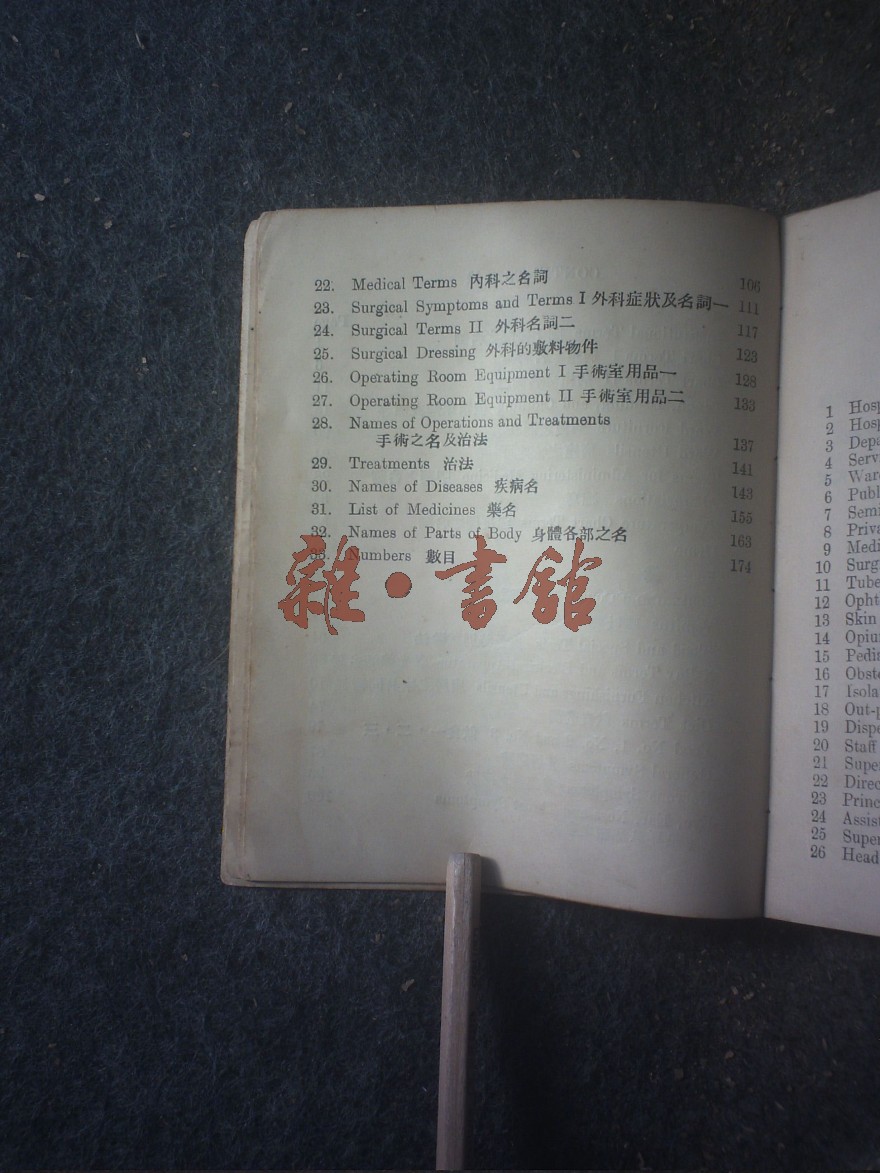 22. Medical Terms 內科之名詞 106
23. Surgical Symptoms and Terms I 外科症狀及名詞一 111
24. Surgical Terms II 外科名詞二 117
25. Surgical Dressing 外科的敷料物件 123
26. Operating Room Equipment I 手術室用品一 128
27. Operating Room Equipment II 手術室用品二 133
28. Names of Operations and Treatments
手術之名及治法 137
29. Treatments 治法 141
30. Names of Diseases 疾病名 143
31. List of Medicines 藥名 155
32. Names of Parts of Body 身體各部之名 163
33. Numbers 數目 174
雜·書館
1 Hosp
2 Hosp
3 Depa
4 Serv
5 War
6 Publ
7 Semi
8 Priva
9 Medi
10 Surg
11 Tube
12 Opht
13 Skin
14 Opiu
15 Pedia
16 Obste
17 Isola
18 Out-p
19 Dispe
20 Staff
21 Super
22 Direc
23 Princ
24 Assist
25 Super
26 Head